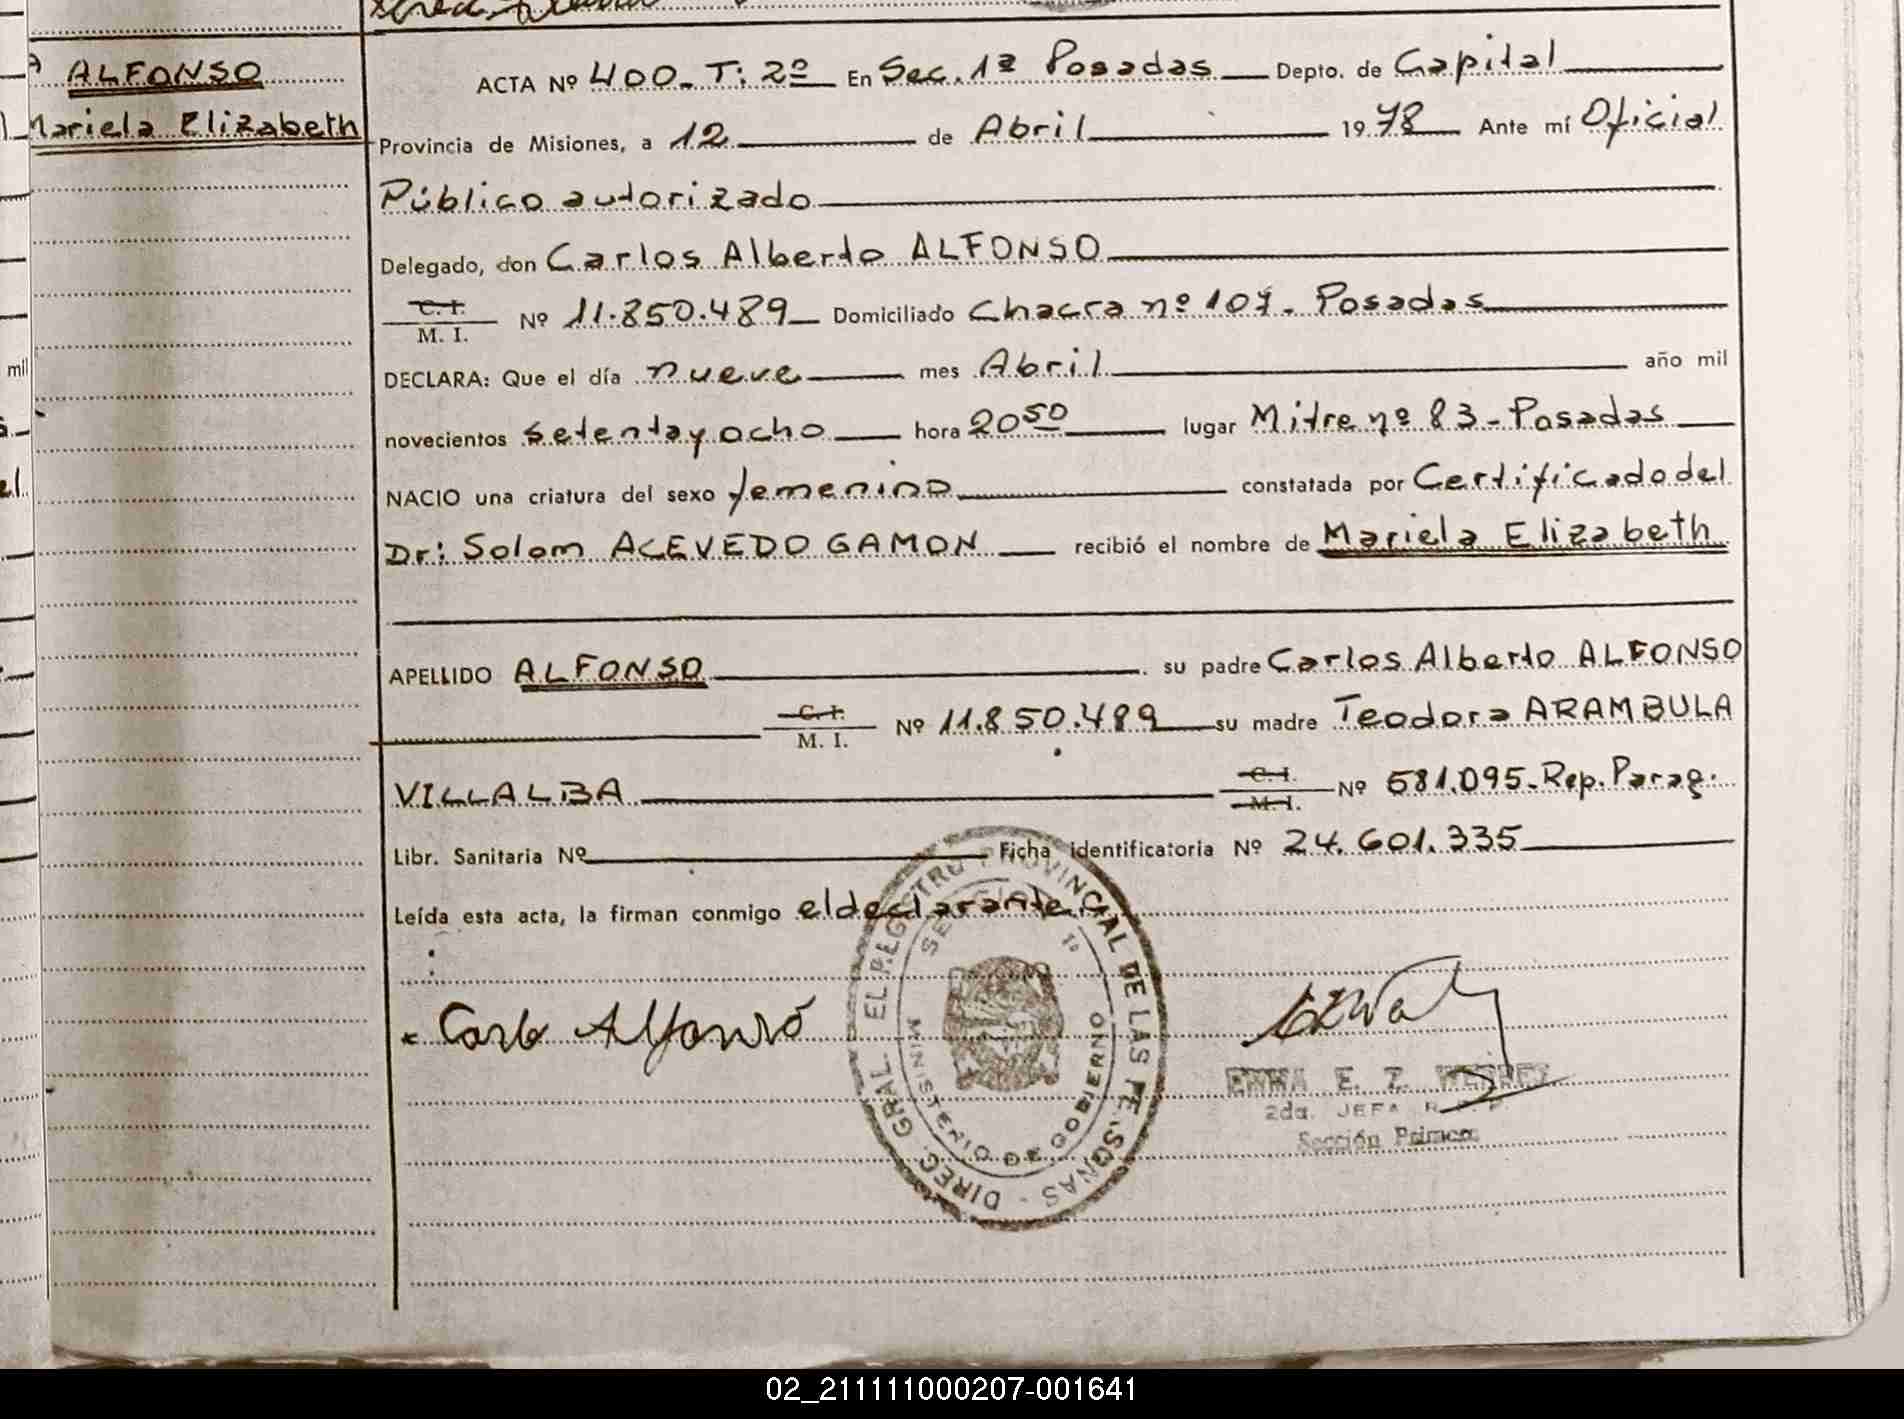 ALFONSO
Mariela Elizabeth
mil
ACTA Nº 400. T: 2º En Sec. 1ª Posadas Depto. de Capital
Provincia de Misiones, a 12 de Abril 1978 Ante mí Oficial
Público autorizado
Delegado, don Carlos Alberto ALFONSO
C. I.
M. I. Nº 11.850.489 Domiciliado Chacra nº 107. Posadas
DECLARA: Que el día nueve mes Abril año mil
novecientos setenta y ocho hora 20 50 lugar Mitre nº 83 - Posadas
NACIO una criatura del sexo femenino constatada por Certificado del
Dr: Solom ACEVEDO GAMON recibió el nombre de Mariela Elizabeth
APELLIDO ALFONSO su padre Carlos Alberto ALFONSO
C. I.
M. I. Nº 11.850.489 su madre Teodora ARAMBULA
VILLALBA C. I. M. I. Nº 581.095. Rep. Parag.
Libr. Sanitaria Nº Ficha identificatoria Nº 24.601.335
Leída esta acta, la firman conmigo el declarante
DIREC. GRAL. EL REGISTRO PROVINCIAL DE LAS PERSONAS
MINISTERIO DE GOBIERNO
Carlo Alfonso
EMMA E. Z.
2da. JEFA R. P. P.
Sección Primera
02_211111000207-001641